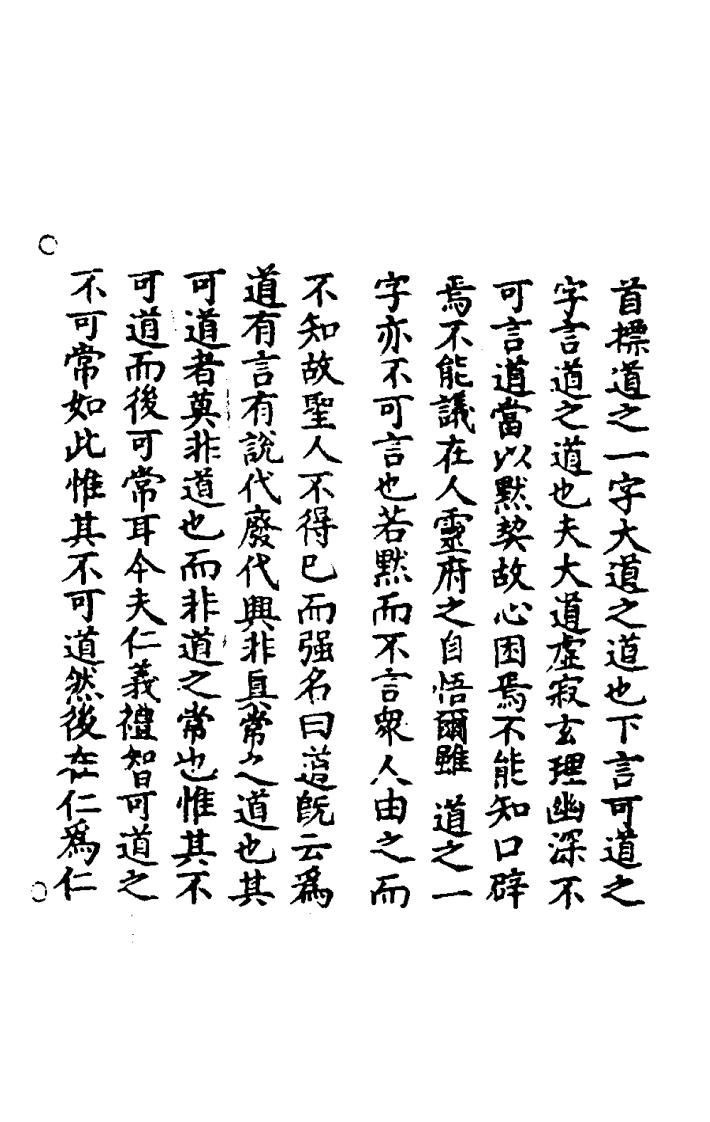 首標道之一字大道之道也下言可道之
字言道之道也夫大道虛寂玄理幽深不
可言道當以默契故心困焉不能知口辟
焉不能議在人靈府之自悟爾雖道之一
字亦不可言也若默而不言衆人由之而
不知故聖人不得已而强名曰道旣云爲
道有言有說代廢代興非真常之道也其
可道者莫非道也而非道之常也惟其不
可道而後可常耳今夫仁義禮智可道之
不可常如此惟其不可道然後在仁爲仁